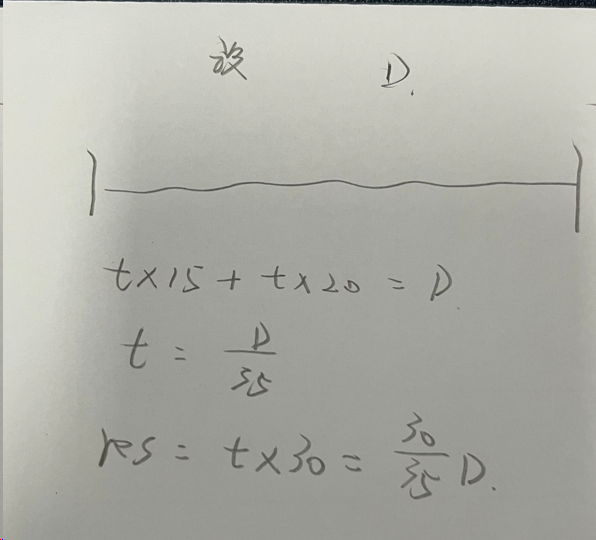 设 D.
t×15 + t×20 = D
t = D/35
res = t×30 = 30/35 D.